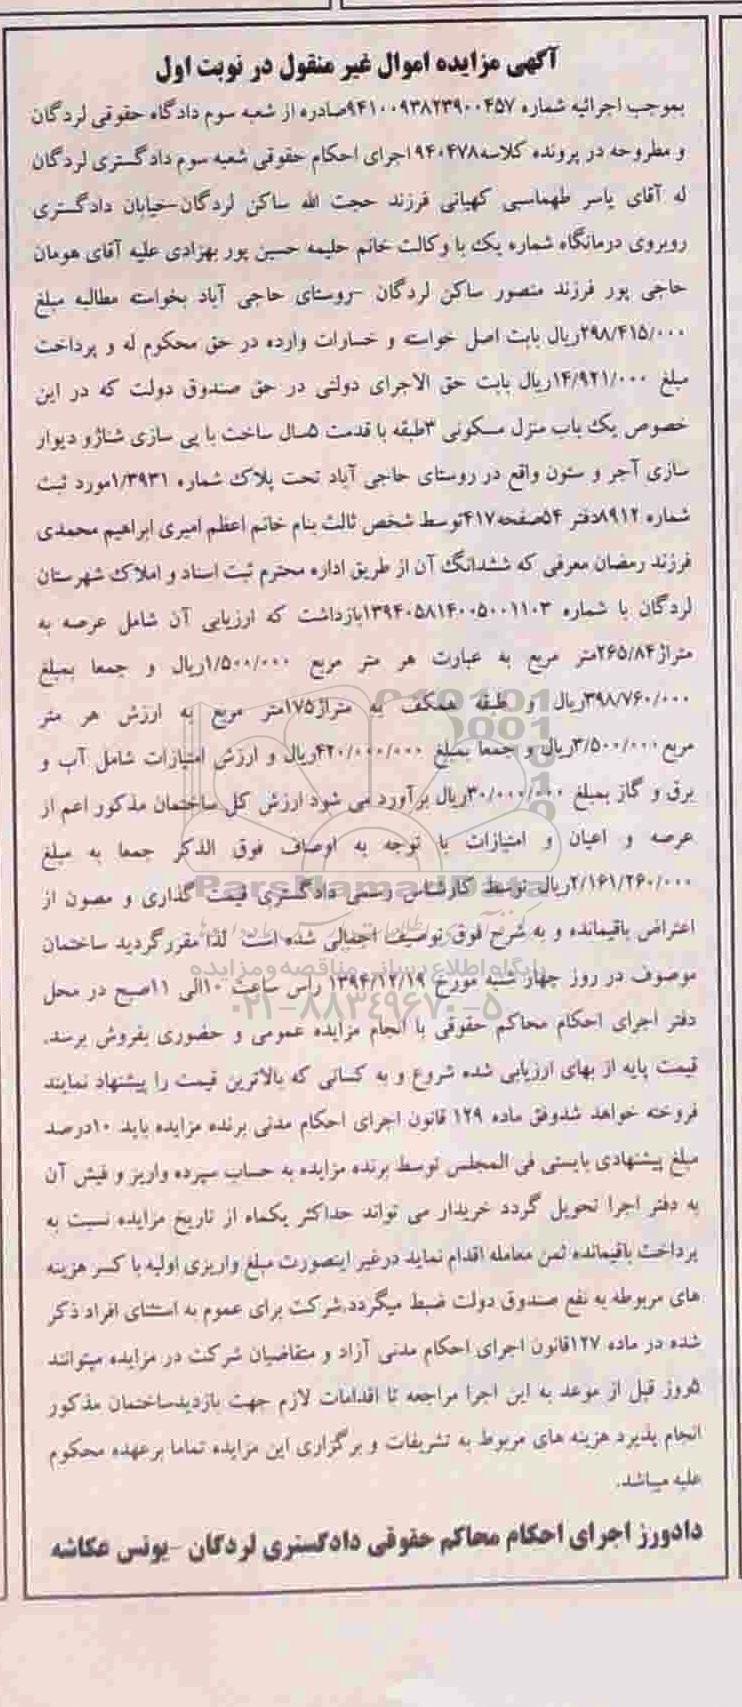 آگهی مزایده اموال غیر منقول در نوبت اول
بموجب اجرائیه شماره ۹۴۱۰۰۹۳۸۲۳۹۰۰۴۵۷صادره از شعبه سوم دادگاه حقوقی لردگان
و مطروحه در پرونده کلاسه۹۴۰۴۷۸اجرای احکام حقوقی شعبه سوم دادگستری لردگان
له آقای یاسر طهماسبی کهیانی فرزند حجت الله ساکن لردگان-خیابان دادگستری
روبروی درمانگاه شماره یک با وکالت خانم حلیمه حسین پور بهزادی علیه آقای هومان
حاجی پور فرزند منصور ساکن لردگان -روستای حاجی آباد بخواسته مطالبه مبلغ
۲۹۸/۴۱۵/۰۰۰ریال بابت اصل خواسته و خسارات وارده در حق محکوم له و پرداخت
مبلغ ۱۴/۹۲۱/۰۰۰ریال بابت حق الاجرای دولتی در حق صندوق دولت که در این
خصوص یک باب منزل مسکونی ۳طبقه با قدمت ۵سال ساخت با پی سازی شناژو دیوار
سازی آجر و ستون واقع در روستای حاجی آباد تحت پلاک شماره ۱/۳۹۳۱مورد ثبت
شماره ۸۹۱۲دفتر ۵۴صفحه۴۱۷توسط شخص ثالث بنام خانم اعظم امیری ابراهیم محمدی
فرزند رمضان معرفی که ششدانگ آن از طریق اداره محترم ثبت اسناد و املاک شهرستان
لردگان با شماره ۱۳۹۴۰۵۸۱۴۰۰۵۰۰۱۱۰۳بازداشت که ارزیابی آن شامل عرصه به
متراژ۲۶۵/۸۴متر مربع به عبارت هر متر مربع ۱/۵۰۰/۰۰۰ریال و جمعا بمبلغ
۳۹۸/۷۶۰/۰۰۰ریال و طبقه همکف به متراژ۱۷۵متر مربع به ارزش هر متر
مربع۳/۵۰۰/۰۰۰ریال و جمعا بمبلغ ۴۲۰/۰۰۰/۰۰۰ریال و ارزش امتیازات شامل آب و
برق و گاز بمبلغ ۳۰/۰۰۰/۰۰۰ریال برآورد می شود ارزش کل ساختمان مذکور اعم از
عرصه و اعیان و امتیازات با توجه به اوصاف فوق الذکر جمعا به مبلغ
۲/۱۶۱/۲۶۰/۰۰۰ریال توسط کارشناس رسمی دادگستری قیمت گذاری و مصون از
ParsNamadData
اعتراض باقیمانده و به شرح فوق توصیف اجمالی شده است لذا مقررگردید ساختمان
پایگاه اطلاع رسانی مناقصه و مزایده
موصوف در روز چهار شنبه مورخ ۱۳۹۴/۱۲/۱۹ راس ساعت ۱۰الی ۱۱صبح در محل
۰۲۱-۸۸۳۴۹۶۷۰-۵
دفتر اجرای احکام محاکم حقوقی با انجام مزایده عمومی و حضوری بفروش برسد.
قیمت پایه از بهای ارزیابی شده شروع و به کسانی که بالاترین قیمت را پیشنهاد نمایند
فروخته خواهد شدوفق ماده ۱۲۹ قانون اجرای احکام مدنی برنده مزایده باید ۱۰درصد
مبلغ پیشنهادی بایستی فی المجلس توسط برنده مزایده به حساب سپرده واریز و فیش آن
به دفتر اجرا تحویل گردد خریدار می تواند حداکثر یکماه از تاریخ مزایده نسبت به
پرداخت باقیمانده ثمن معامله اقدام نماید درغیر اینصورت مبلغ واریزی اولیه با کسر هزینه
های مربوطه به نفع صندوق دولت ضبط میگردد.شرکت برای عموم به استثنای افراد ذکر
شده در ماده ۱۲۷قانون اجرای احکام مدنی آزاد و متقاضیان شرکت در مزایده میتوانند
۵روز قبل از موعد به این اجرا مراجعه تا اقدامات لازم جهت بازدیدساختمان مذکور
انجام پذیرد هزینه های مربوط به تشریفات و برگزاری این مزایده تماما برعهده محکوم
علیه میباشد.
دادورز اجرای احکام محاکم حقوقی دادگستری لردگان -یونس عکاشه